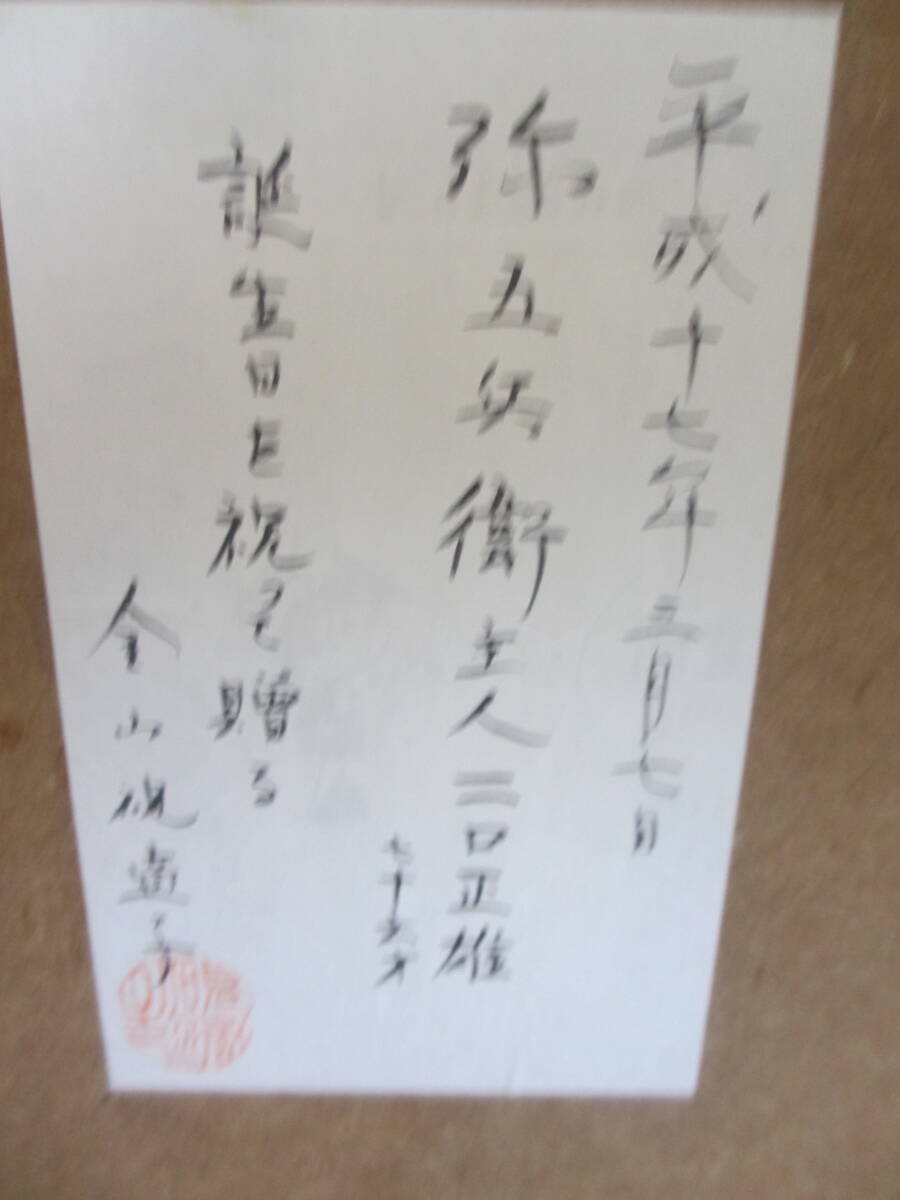 平成十七年三月七日
弥五兵衛主人二口正雄
七十六才
誕生日を祝って贈る
金山祝